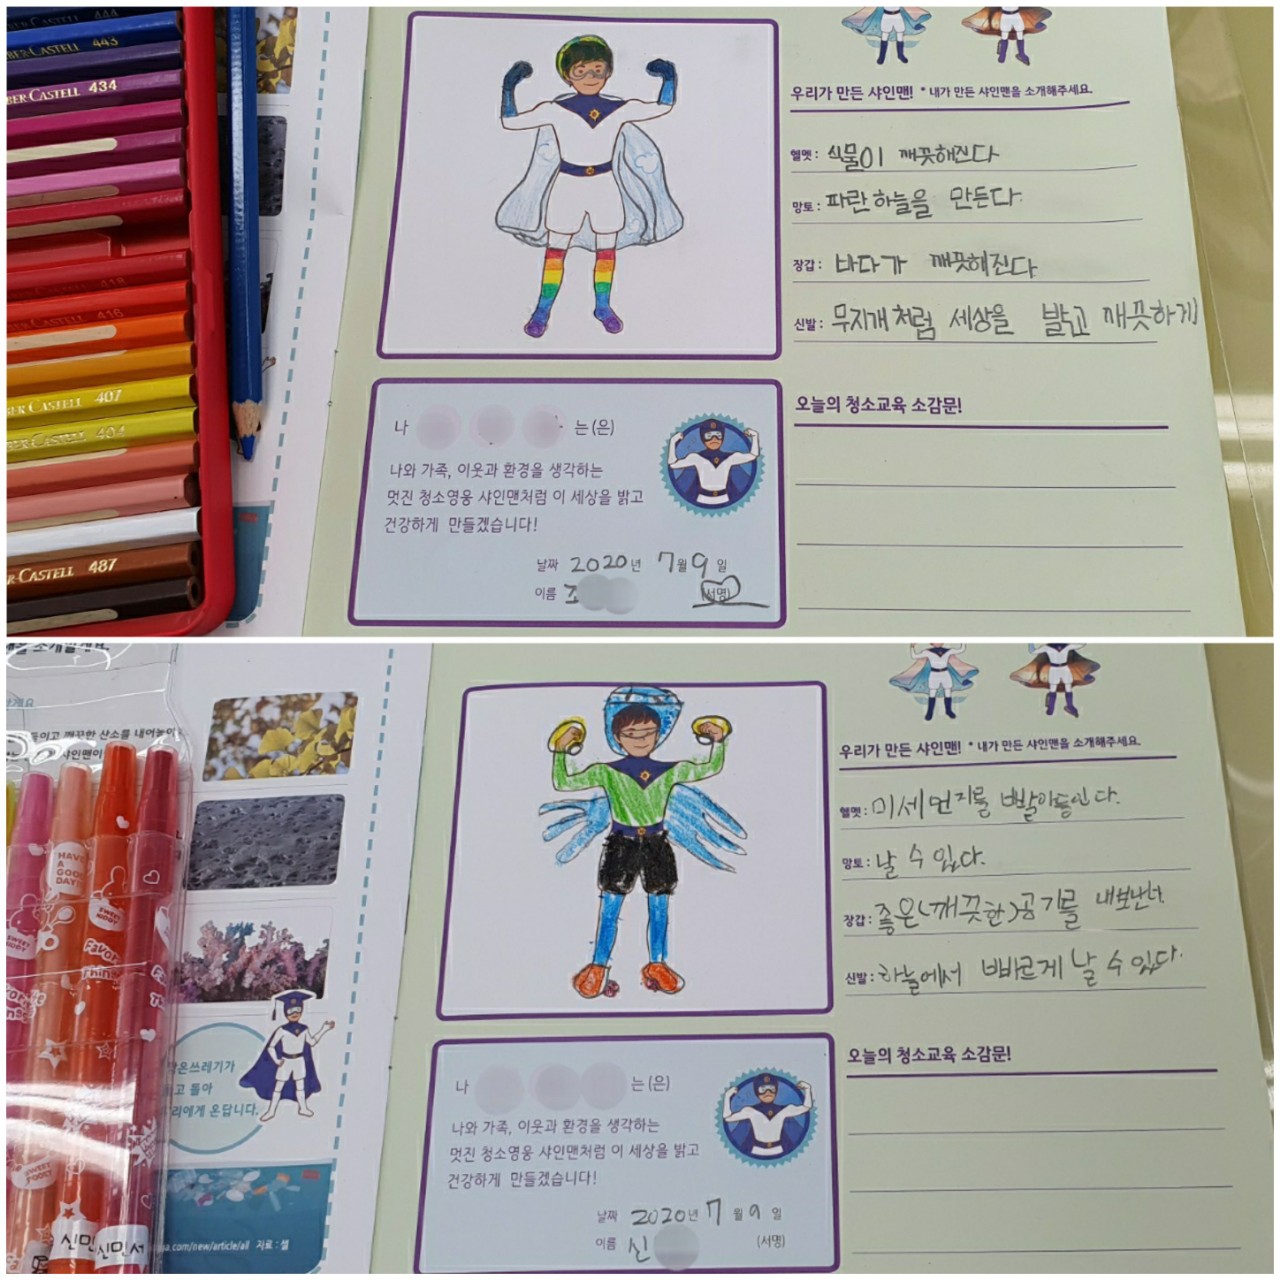 444
443
BER-CASTELL
BER CASTELL 434
418
416
BER CASTELL 407
BER CASTELL 404
ER-CASTELL 487
우리가 만든 샤인맨! * 내가 만든 샤인맨을 소개해주세요.
헬멧 : 식물이 깨끗해진다
망토 : 파란 하늘을 만든다.
장갑 : 바다가 깨끗해진다
신발 : 무지개처럼 세상을 밝고 깨끗하게
오늘의 청소교육 소감문!
나 는(은)
나와 가족, 이웃과 환경을 생각하는
멋진 청소영웅 샤인맨처럼 이 세상을 밝고
건강하게 만들겠습니다!
날짜 2020년 7월 9일
이름 조 (서명)
를 소개할게요.
들이고 깨끗한 산소를 내어놓아
샤인맨이
HAVE A GOOD DAY!
SWEET
Favorite Thin
우리가 만든 샤인맨! * 내가 만든 샤인맨을 소개해주세요.
헬멧 : 미세먼지를 빨아들인다.
망토 : 날 수 있다.
장갑 : 좋은(깨끗한)공기를 내보낸다.
신발 : 하늘에서 빠르게 날 수 있다.
오늘의 청소교육 소감문!
나 는(은)
나와 가족, 이웃과 환경을 생각하는
멋진 청소영웅 샤인맨처럼 이 세상을 밝고
건강하게 만들겠습니다!
날짜 2020년 7월 9일
이름 신 (서명)
은쓰레기가
고 돌아
리에게 온답니다.
신민
신민서
.com/new/article/all 자료 : 셀